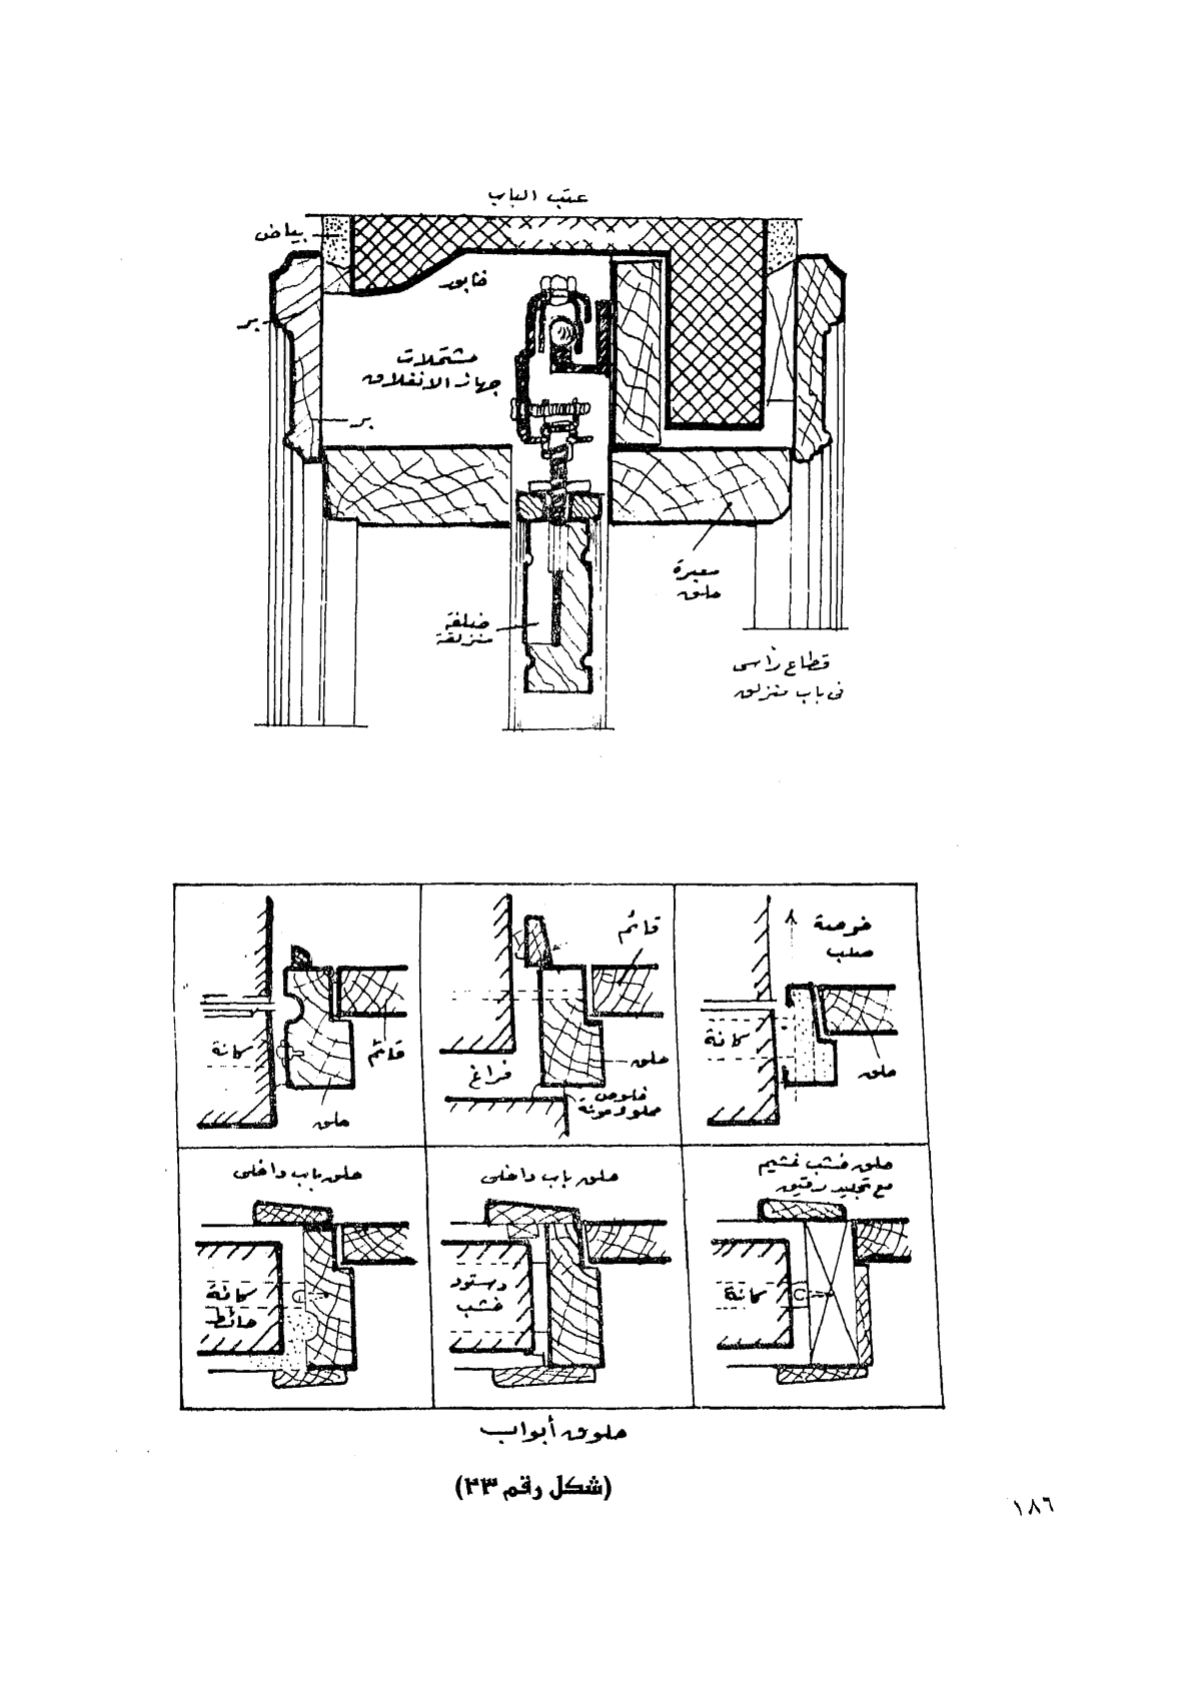 عتب الباب
بياض
خابور
بر
مشتملات
جهاز الانغلاق
بر
معبرة
حلق
ضلفة
منزلقة
قطاع رأسى
فى باب منزلق
خوصة
صلب
كانة
حلق
قائم
حلق
فراغ
خلوص
مملوء مونة
كانة
قائم
حلق
حلق خشب غشيم
مع تجليد رقيق
كانة
حلق باب داخلى
دستور
خشب
حلق باب داخلى
كانة
حائط
حلوق أبواب
(شكل رقم ٢٣)
١٨٦